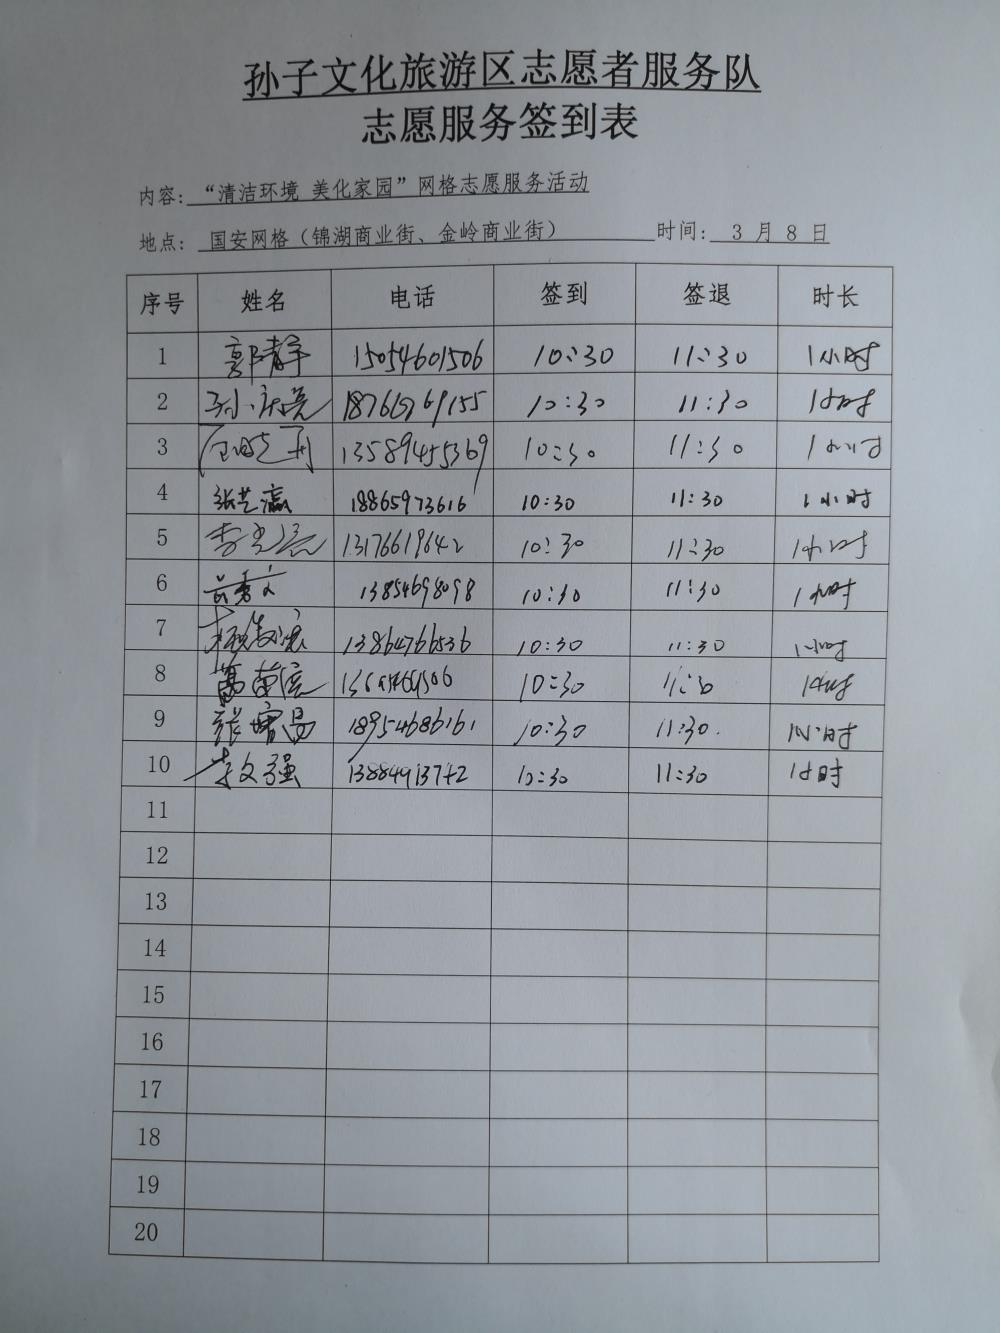 孙子文化旅游区志愿者服务队
志愿服务签到表
内容:“清洁环境 美化家园”网格志愿服务活动
地点: 国安网格(锦湖商业街、金岭商业街) 时间: 3 月 8 日
序号 姓名 电话 签到 签退 时长
1 郭静 15054601506 10:30 11:30 1小时
2 10:30 11:30 1小时
3 13589455369 10:30 11:30 1小时
4 张艺瀛 18865973616 10:30 11:30 1小时
5 13176619642 10:30 11:30 1小时
6 13854698098 10:30 11:30 1小时
7 13864766536 10:30 11:30 1小时
8 10:30 11:30 1小时
9 18954686161 10:30 11:30. 1小时
10 李文强 13884913742 10:30 11:30 1小时
11
12
13
14
15
16
17
18
19
20